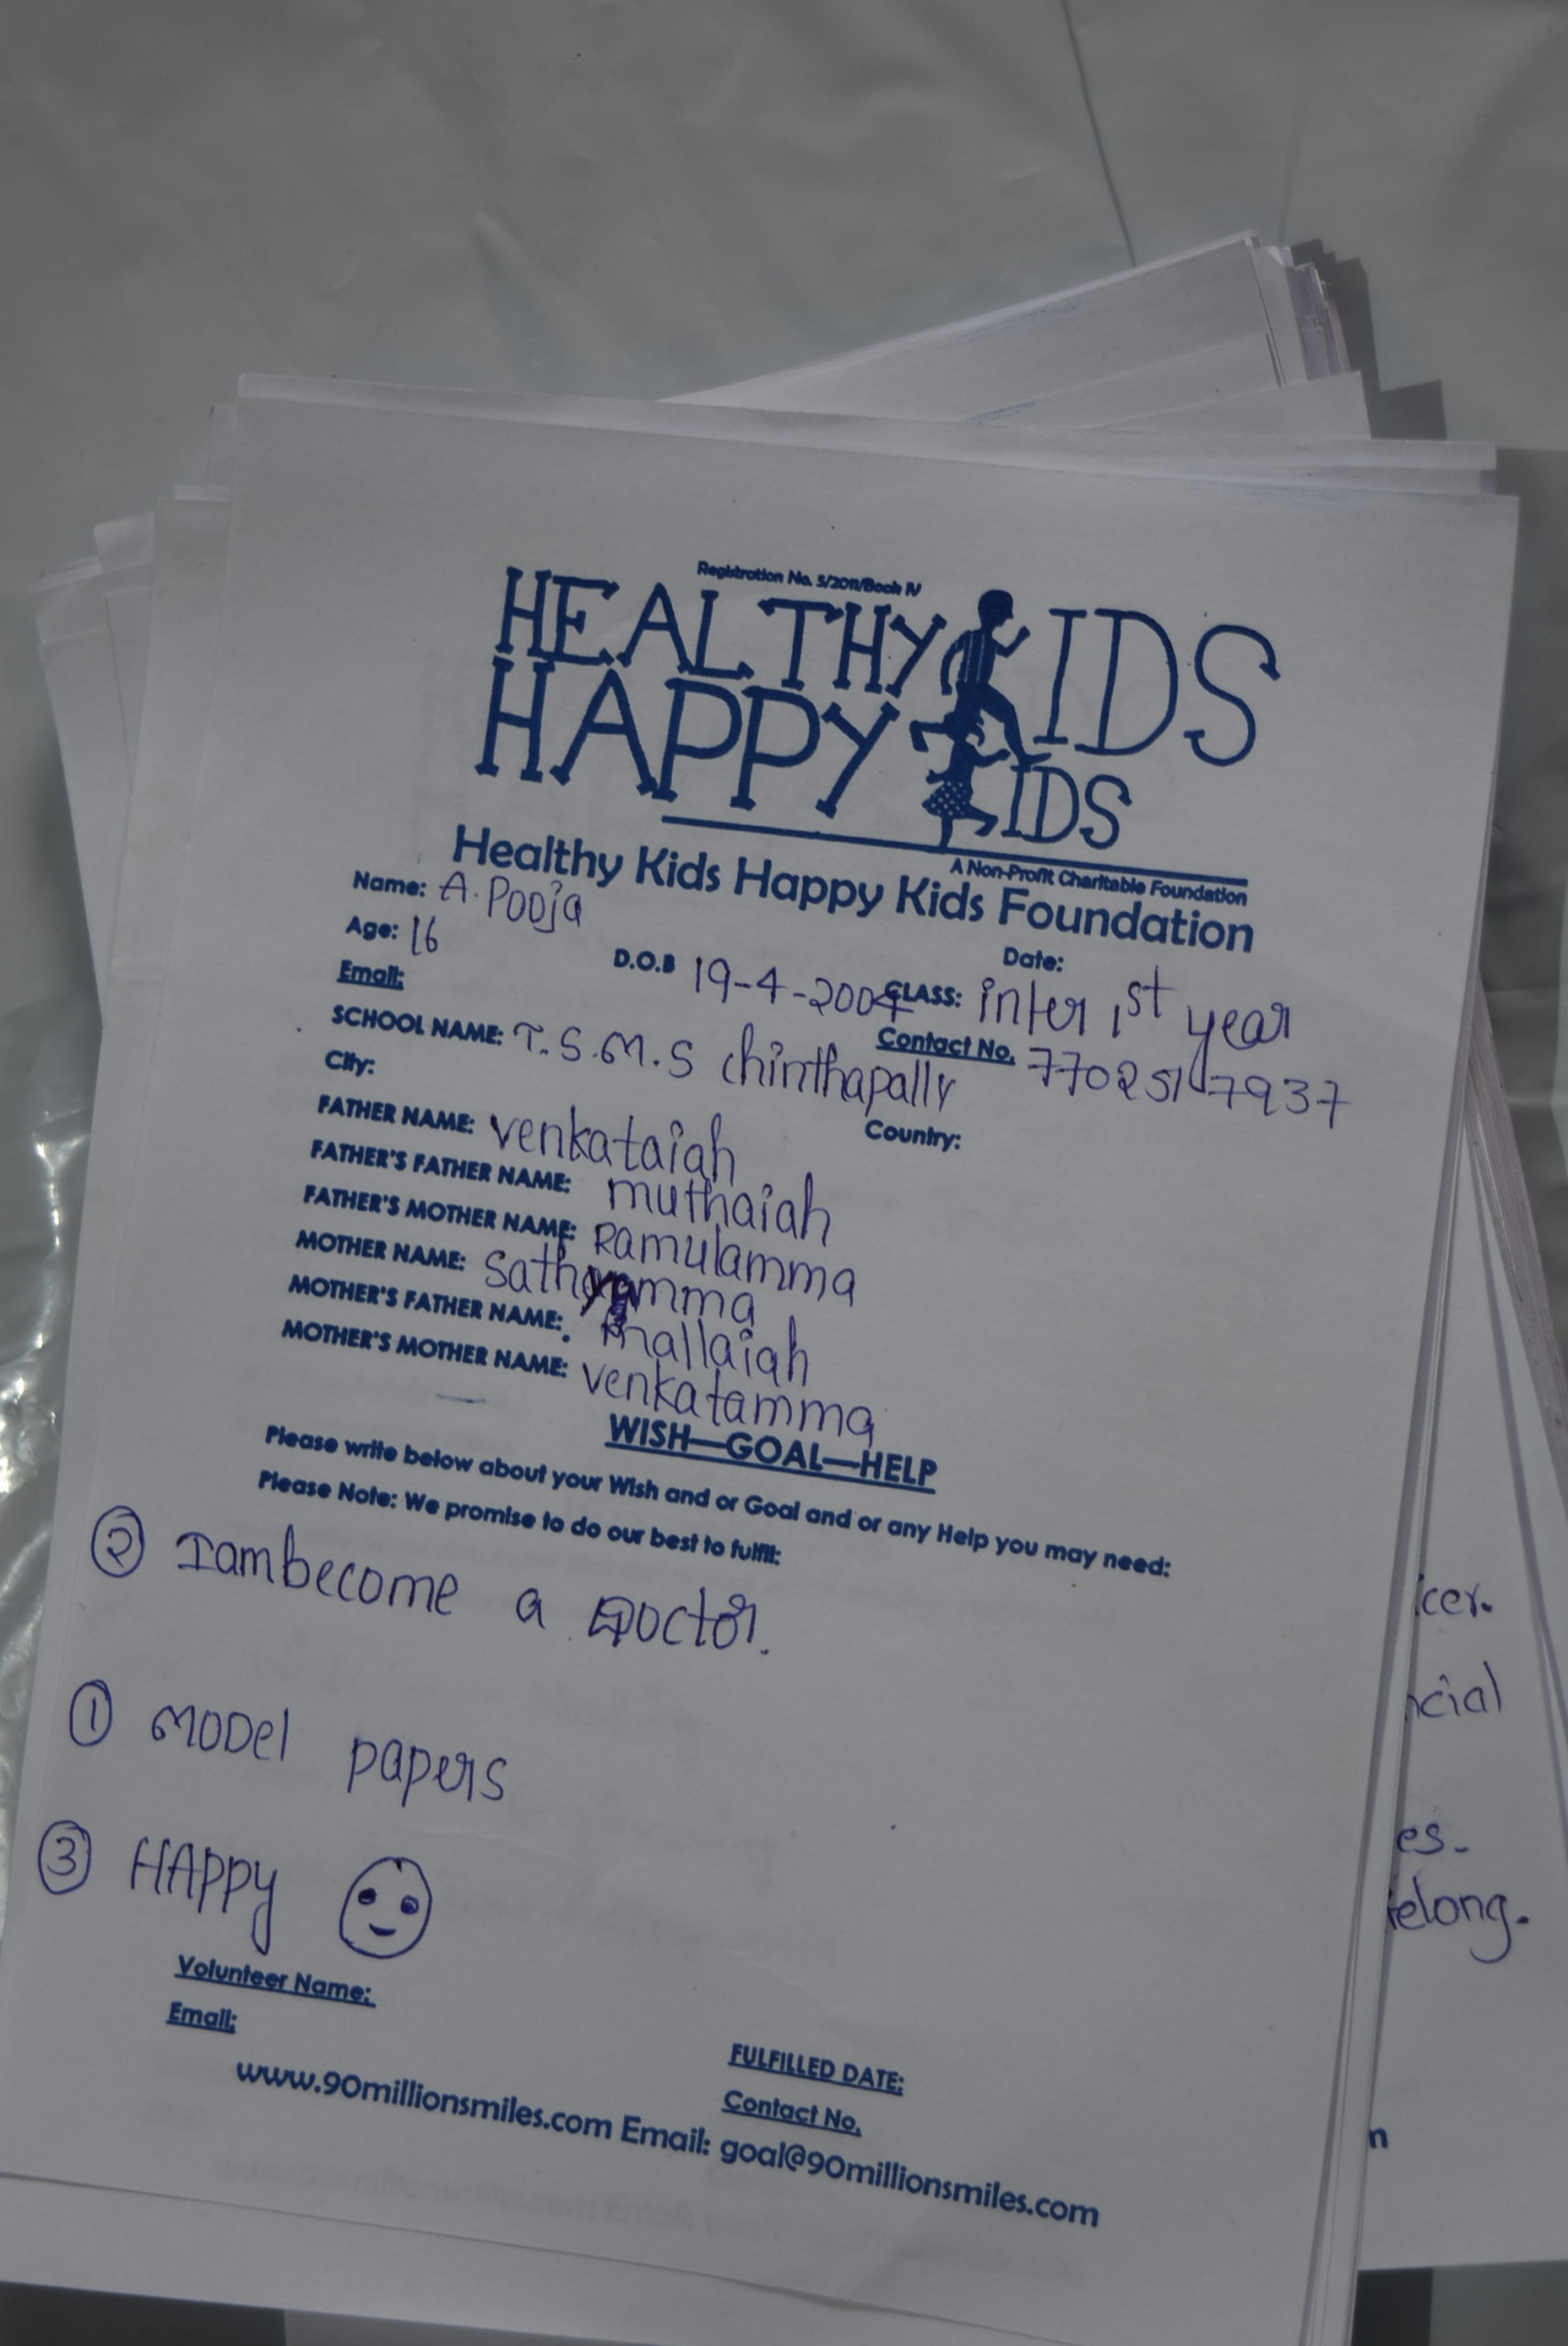 Registration No. 5/2011/Book IV
HEALTHY KIDS
HAPPY KIDS
A Non-Profit Charitable Foundation
Healthy Kids Happy Kids Foundation
Name: A. Pooja
Date:
Age: 16
D.O.B 19-4-2004
CLASS: inter 1st year
Email:
Contact No. 7702517937
SCHOOL NAME: T.S.M.S chinthapally
City:
Country:
FATHER NAME: venkataiah
FATHER'S FATHER NAME: muthaiah
FATHER'S MOTHER NAME: Ramulamma
MOTHER NAME: Sathyamma
MOTHER'S FATHER NAME: mallaiah
MOTHER'S MOTHER NAME: venkatamma
WISH—GOAL—HELP
Please write below about your Wish and or Goal and or any Help you may need:
Please Note: We promise to do our best to fulfill:
2 Iambecome a Doctor.
1 MODel papers
3 HAPPY
Volunteer Name:
FULFILLED DATE:
Email:
Contact No.
www.90millionsmiles.com Email: goal@90millionsmiles.com
icer.
ncial
es.
elong.
n